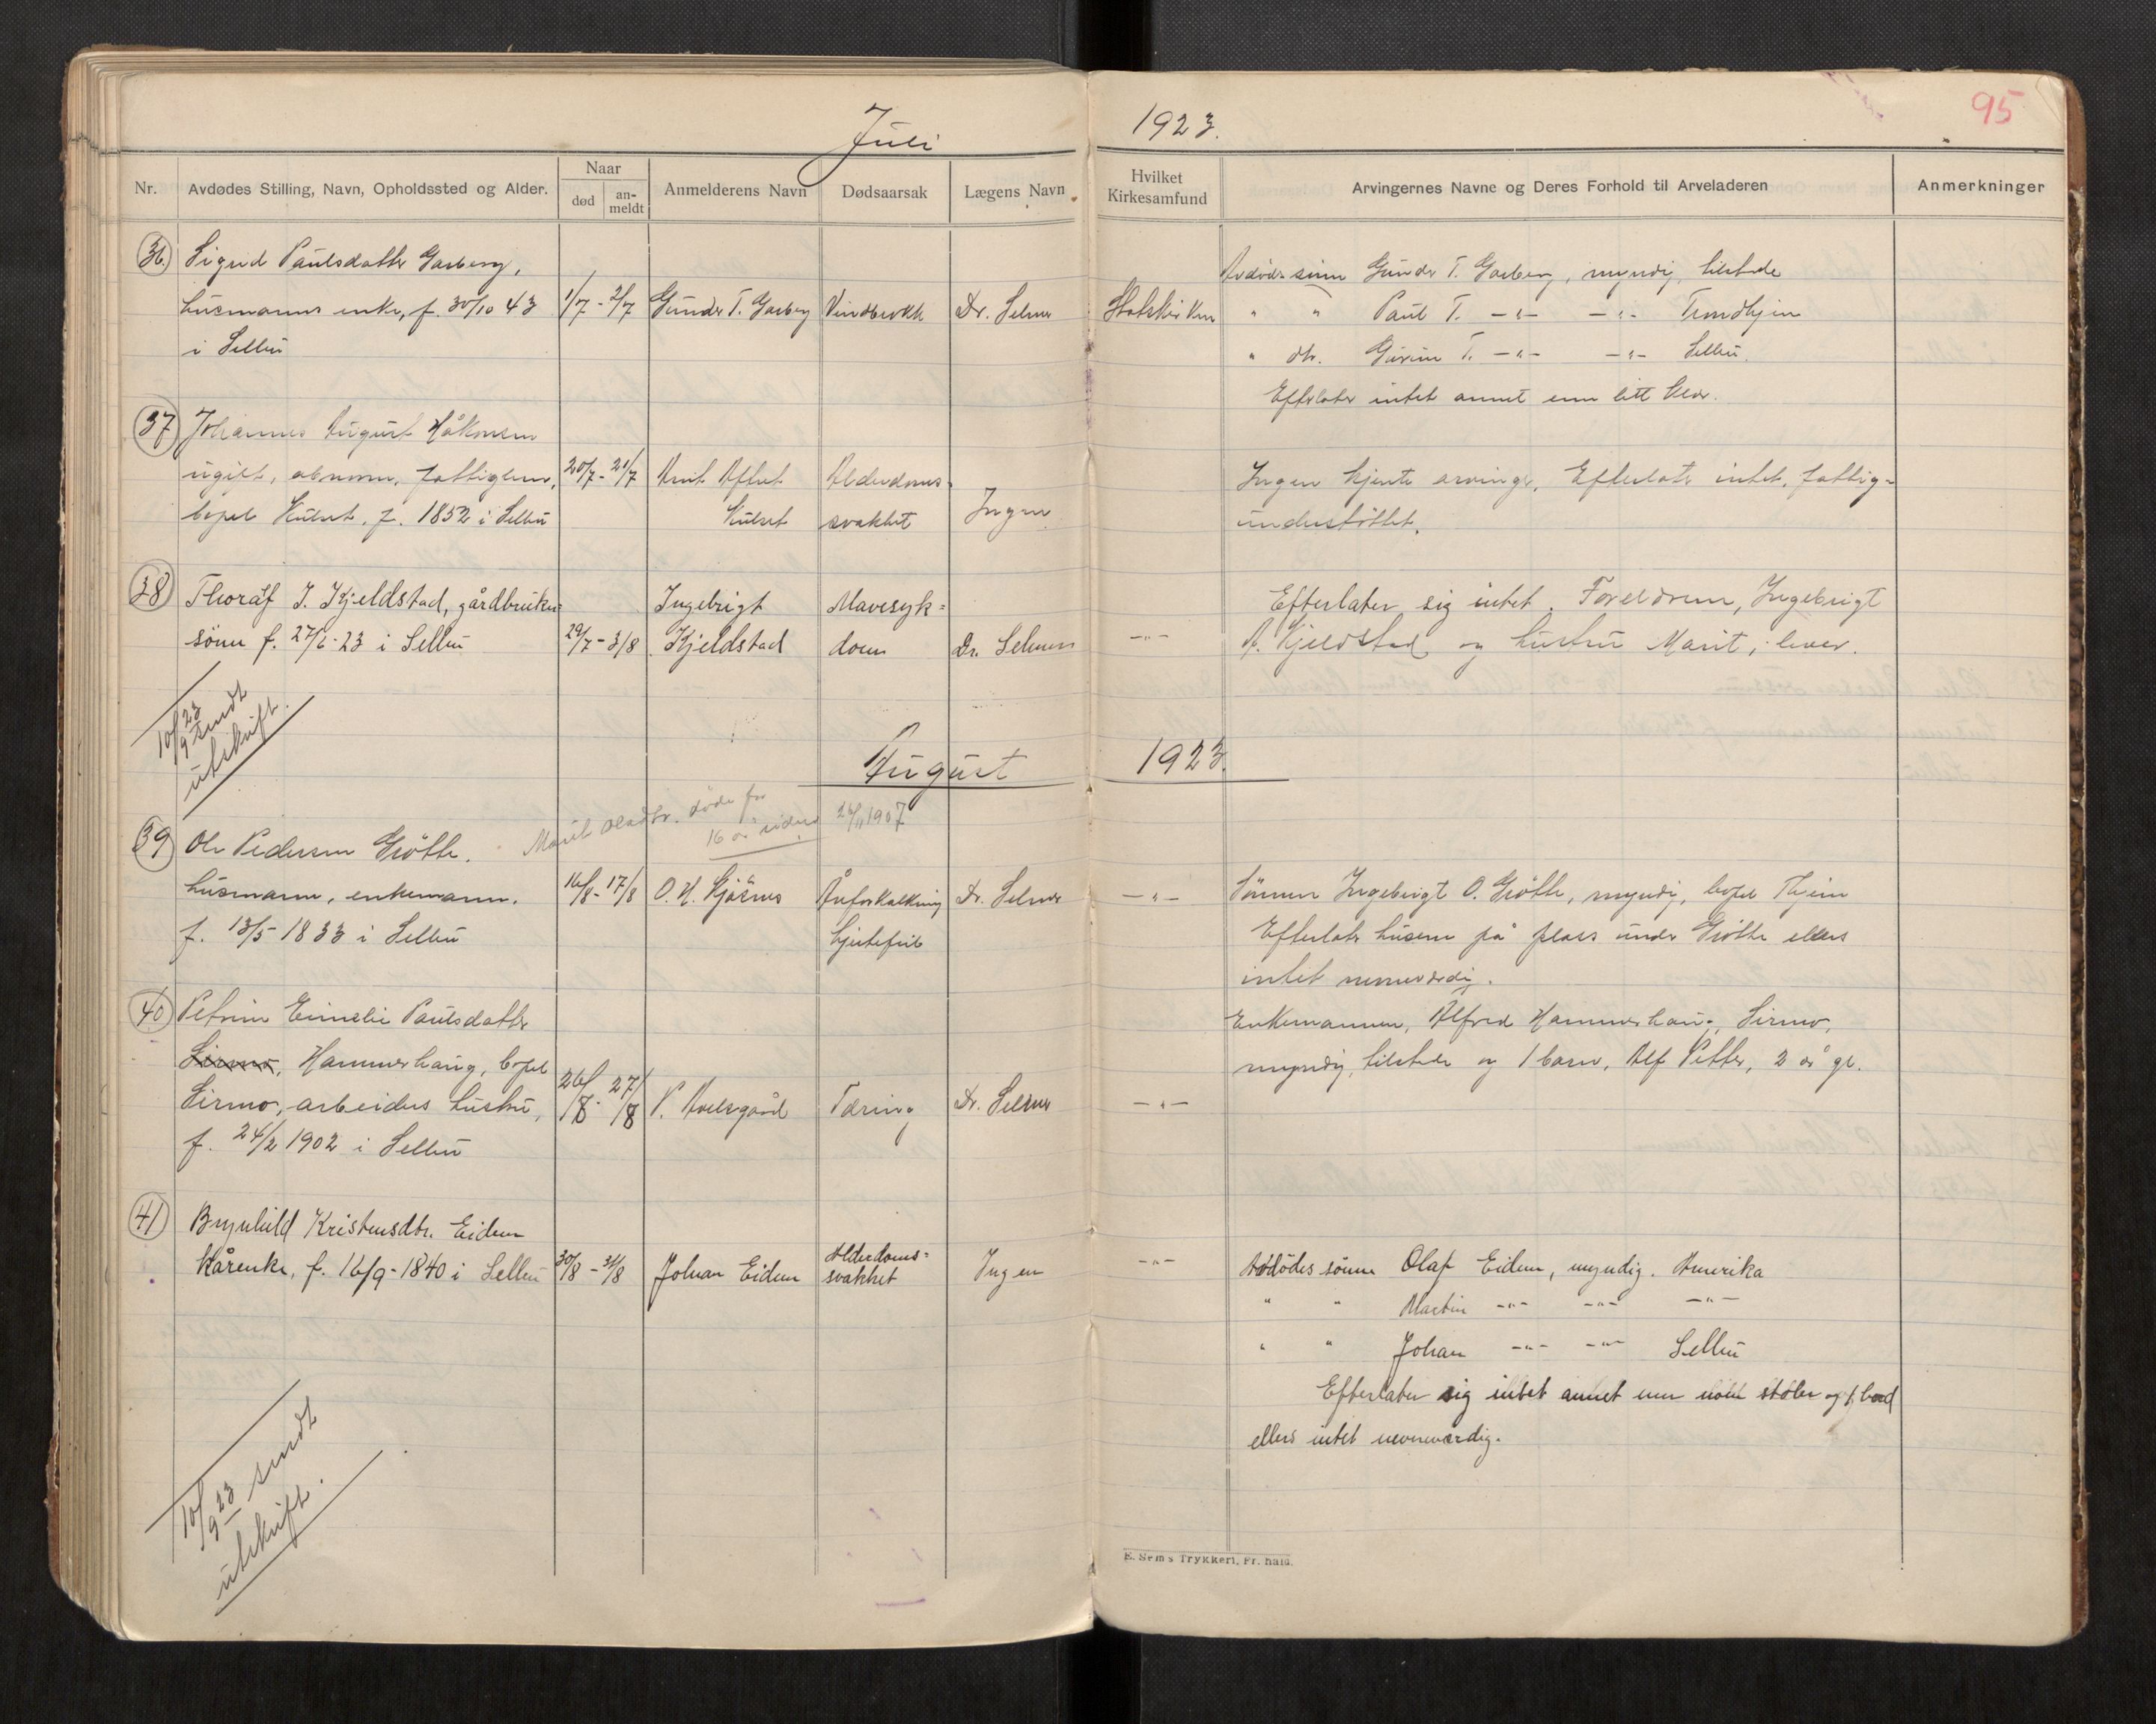 Juli 1923.
95
Nr.
Avdødes Stilling, Navn, Opholdssted og Alder.
Naar
død
an-
meldt
Anmelderens Navn
Dødsaarsak
Lægens Navn
Hvilket
Kirkesamfund
Arvingernes Navne og Deres Forhold til Arveladeren
Anmerkninger
36) Sigrid Paulsdatter Garberg,
husmanns enke, f. 30/10 43
i Selbu
1/7 - 2/7
Gunder T. Garberg
Dr. Selmer
Statskirken
Avdødes sönn Gunder T. Garberg, myndig, tilstede
" " Paul T. -"- -"- Trondhjem
" dtr. Guruni T. -"- -"- Selbu.
Efterlater intet annet enn litt klær.
37) Johannes August Håkonsen
ugift, abnorm, fattiglem,
bopel Kulset, f. 1852 i Selbu
20/7 - 21/7
Arnt Aftret
Kulset
Alderdoms-
svakhet
Ingen
Ingen kjente arvinger. Efterlater intet, fattig-
understöttet.
38) Thoralf I. Kjeldstad, gårdbruker-
sönn f. 27/6-23 i Selbu
29/7 - 3/8
Ingebrigt
Kjeldstad
Mavesyk-
dom
Dr. Selmer
-"-
Efterlater sig intet. Foreldrene, Ingebrigt
A. Kjeldstad og hustru Marit, lever.
10/9 23 sendt
utskrift.
August 1923.
Marit Olasdtr. döde for
16 år siden
26/11 1907
39) Ole Pedersen Grötte.
husmann, enkemann.
f. 13/5 1833 i Selbu
16/8 - 17/8
O. H. Kjösnes
Åreforkalkning
hjertefeil
Dr. Selmer
-"-
Sönnen Ingebrigt O. Grötte, myndig, bopel Thjem
Efterlater husene på plass under Grötte ellers
intet nevneverdig.
40) Petrine Emelie Paulsdatter
Sirmo, Hammerhaug, bopel
Sirmo, arbeiders hustru,
f. 24/2 1902 i Selbu
26/8 - 27/8
P. Avelsgaard
Tæring
Dr. Selmer
-"-
Enkemannen, Alfred Hammerhaug, Sirmo,
myndig, tilstede og 1 barn, Alf Petter, 2 år gl.
41) Brynhild Kristensdtr. Eidem
kårenke, f. 16/9-1840 i Selbu
30/8 - 31/8
Johan Eidem
Alderdoms-
svakhet
Ingen
-"-
Avdödes sönn Olaf Eidem, myndig. Amerika
" " Martin -"- -"- -"-
" " Johan -"- -"- Selbu
Efterlater sig intet annet enn noen stoler og 1 bord
ellers intet nevneverdig.
10/9 23 sendt
utskrift.
E. Sem's Trykkeri, Fr. hald.